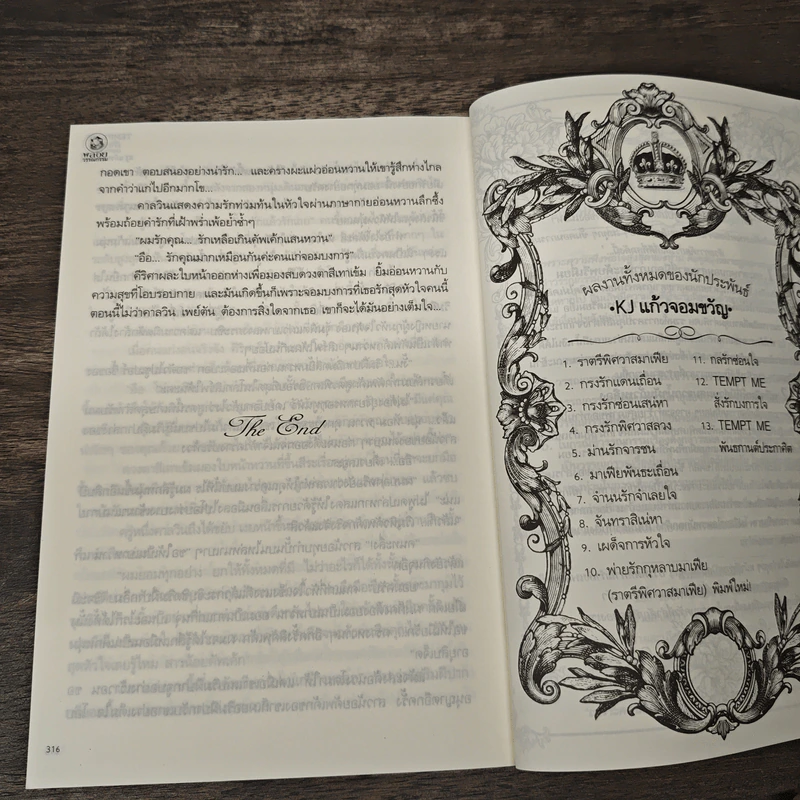 พลอย
วรรณกรรม
กอดเขา ตอบสนองอย่างน่ารัก... และครางผะแผ่วอ่อนหวานให้เขารู้สึกห่างไกล
จากคำว่าแกไปอีกมากโข...
คาลวินแสดงความรักท่วมท้นในหัวใจผ่านภาษากายอ่อนหวานลึกซึ้ง
พร้อมถ้อยคำรักที่เฝ้าพร่ำเพ้อย้ำซ้ำๆ
"ผมรักคุณ... รักเหลือเกินคัพเค้กแสนหวาน"
"อือ... รักคุณมากเหมือนกันค่ะคนแก่จอมบงการ"
คีริศาผละใบหน้าออกห่างเพื่อมองสบดวงตาสีเทาเข้ม ยิ้มอ่อนหวานกับ
ความสุขที่โอบรอบกาย และมันเกิดขึ้นก็เพราะจอมบงการที่เธอรักสุดหัวใจคนนี้
ตอนนี้ไม่ว่าคาลวิน เพย์ตัน ต้องการสิ่งใดจากเธอ เขาก็จะได้มันอย่างเต็มใจ...
The End
316
ผลงานทั้งหมดของนักประพันธ์
•KJ แก้วจอมขวัญ•
1. ราตรีพิศวาสมาเฟีย
2. กรงรักแดนเถื่อน
3. กรงรักซ่อนเสน่หา
4. กรงรักพิศวาสลวง
5. ม่านรักจารชน
6. มาเฟียพันธะเถื่อน
7. จำนนรักจำเลยใจ
8. จันทราสิเน่หา
9. เผด็จการหัวใจ
10. พ่ายรักกุหลาบมาเฟีย
(ราตรีพิศวาสมาเฟีย) พิมพ์ใหม่!
11. กลรักซ่อนใจ
12. TEMPT ME
สั่งรักบงการใจ
13. TEMPT ME
พันธกานต์ประกาศิต